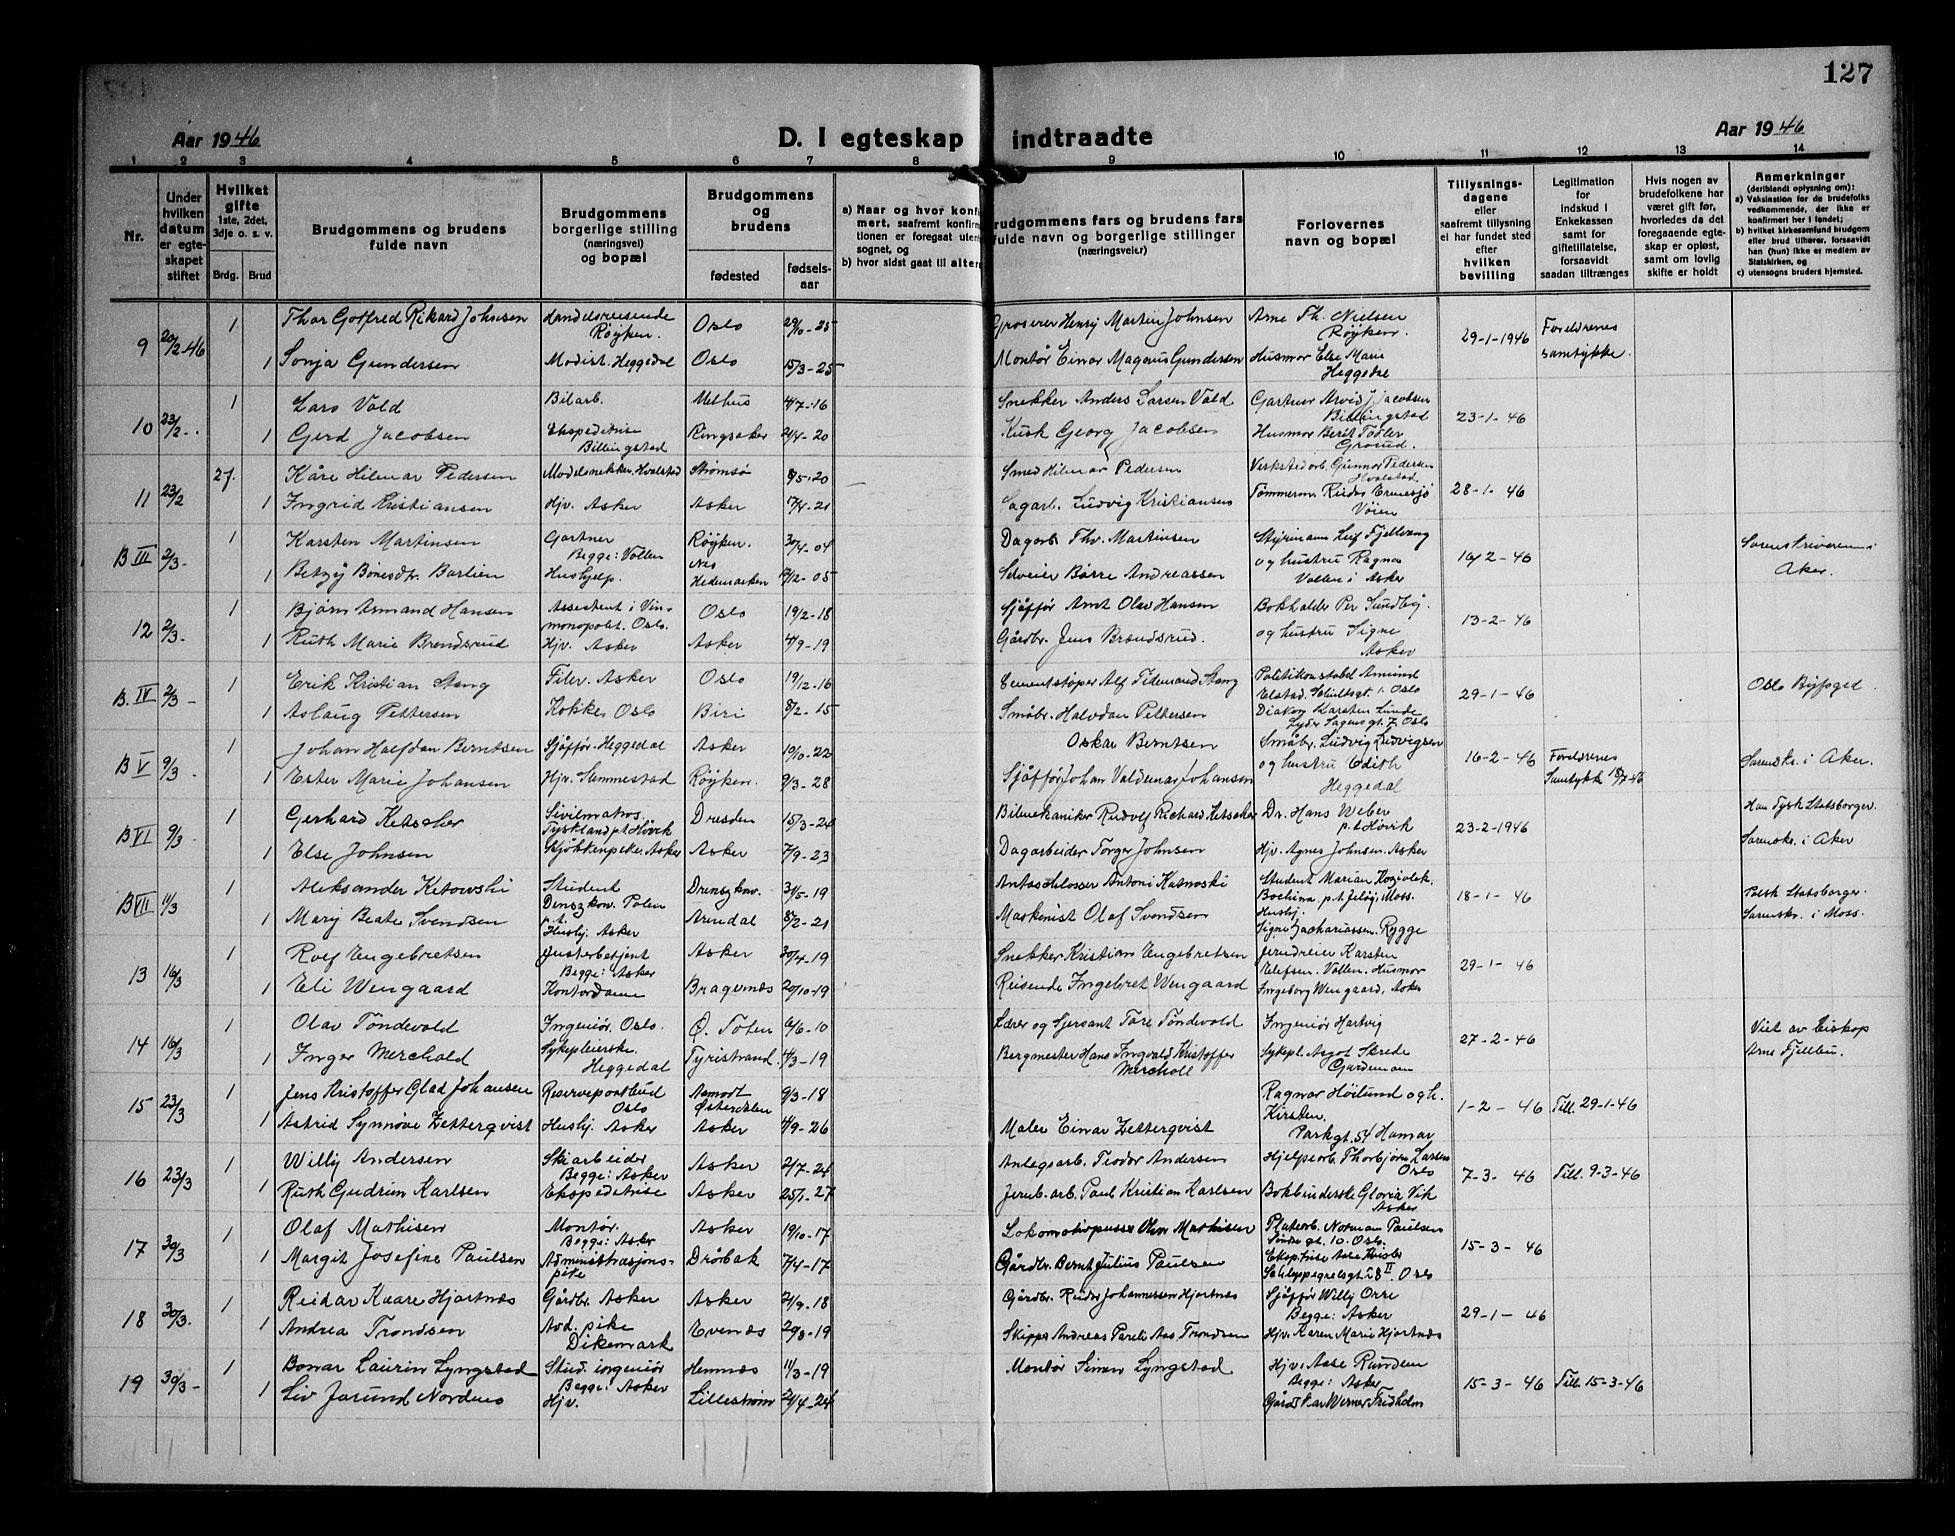 127
Aar 1946
D. I egteskap indtraadte
Aar 1946
1 2 3 4 5 6 7 8 9 10 11 12 13 14
Nr.
Under hvilken datum er egteskapet stiftet
Hvilket gifte
1ste, 2det, 3dje o. s. v.
Brdg. Brud
Brudgommens og brudens fulde navn
Brudgommens borgerlige stilling (næringsvei) og bopæl
Brudgommens og brudens
fødested
fødselsaar
a) Naar og hvor konfirmert, saafremt konfirmationen er foregaat utensognet, og
b) hvor sidst gaat til alters
Brudgommens fars og brudens fars fulde navn og borgerlige stillinger (næringsveier)
Forlovernes navn og bopæl
Tillysningsdagene eller saafremt tillysning ei har fundet sted efter hvilken bevilling
Legitimation for indskud i Enkekassen samt for giftetillatelse, forsaavidt saadan tiltrænges
Hvis nogen av brudefolkene har været gift før, hvorledes da det foregaaende egteskap er opløst, samt om lovlig skifte er holdt
Anmerkninger
(deriblandt oplysning om):
a) Vaksination for de brudefolks vedkommende, der ikke er konfirmert her i landet;
b) hvilket kirkesamfund brudgom eller brud tilhører, forsaavidt han (hun) ikke er medlem av Statskirken, og
c) utensogns bruders hjemsted.
9 20/2-46 1 Thor Gotfred Rikard Johnsen Handelsreisende Røyken. Oslo 29/10-25 Groserer Henry Martin Johnsen Arne Th. Nielsen Røyken. 29-1-1946 Foreldrenes samtykke.
1 Sonja Gundersen Modist. Heggedal Oslo 15/3-25 Montør Einar Magnus Gundersen Husmor Else Marie Heggedal
10 23/2-. 1 Lars Vold Bilarb. Melhus 4/7-16 Snekker Anders Larsen Vald Gartner Arvid J Jacobsen Billingstad 23-1-46
1 Gerd Jacobsen Ekspeditrise Billingstad Ringsaker 24/4-20 Kusk Georg Jacobsen Husmor Berit Tobler Grorud.
11 23/2 27. Kåre Hilmar Pedersen Modelsnekker. Hvalstad Strømsø 8/5-20 Smed Hilmar Pedersen Verkstedarb. Gunnar Pedersen Hvalstad. 28-1-46
1 Ingrid Kristiansen Hjv. Asker Asker 17/4-21 Sagarb. Ludvig Kristiansen Tømmerm. Vøien
B III 2/3- 1 Karsten Martinsen Gartner Begge: Vollen Røyken. 30/4-04 Dagarb Thv. Martinsen Styrmann Leif Fjellvang 16/2-46 Sorenskriveren i Aker.
1 Betzy Bønesdtr. Barlien Hushjelp. Nes Hedemarken 12/2-05 Sveier Børre Andreassen og hustru Ragna Vollen i Asker
12 2/3- 1 Bjørn Armand Hansen Assistent i Vinmonopolet. Oslo. Oslo 19/2-18 Sjåffør Arnt Olav Hansen Bokholder Per Sundby. 13-2-46
1 Ruth Marie Brendsrud Hjv. Asker Asker 4/9-19 Gårdbr. Jens Brendsrud. og hustru Signe Asker
B. IV 2/3- 1 Erik Kristian Stang Filer. Asker Oslo 19/12-16 Cementstøper Alf Tidemand Stang Politikonstabel Amund Elstad. Schultsgt. i. Oslo 29-1-46 Oslo Byfoged.
1 Aslaug Pettersen Kokke Oslo Biri 8/2-15 Småbr. Halvdan Pettersen Diakon Karsten Lunde Lyder Sagensgt. 7. Oslo
B V 9/3. 1 Johan Halfdan Berntsen Sjåffør. Heggedal Asker 19/10-22 Oskar Berntsen Småbr. Ludvig Ludvigsen 16-2-46 Foreldrenes Samtykk 18/7-46 Sorensk. i Aker.
1 Ester Marie Johansen Hjv. Sammestad Røyken. 9/3-28 Sjåffør Johan Valdemar Johansen og hustru Edith Heggedal
B VI 9/3. 1 Gerhard Ketscher Sivilmatros. Tyskland p.t. Høvik Dresden 15/3-24 Bilmekaniker Rudolf Richard Ketscher Dr. Hans Weber p.t Høvik 23-2-1946 Han Tysk Statsborger.
1 Else Johnsen Kjøkkenpike. Asker Asker 7/9-23 Dagarbeider Torger Johnsen Hjv. Agnes Johnsen. Asker Sorensk. i Aker
B VII 11/3 1 Aleksander Ketowski Student Polen p.t. 31/5-19 Antoni Student Marian p.t. Jeløy, Moss. 18-1-46 Polsk Statsborger.
1 Mary Beate Svendsen Hushj. Asker Arendal 8/2-21 Maskinist Olaf Svendsen Hushj. Signe Zachariassen. Rygge Sorensk. i Moss.
13 16/3 1 Rolf Engebretsen Justerbetjent Begge: Asker Asker 30/4-19 Snekker Kristian Engebretsen Karsten Elefsen. Vollen. Husmor 29-1-46
1 Eli Wengaard Kontordame Bragernæs 20/10-19 Reisende Ingebret Wengaard Ingeborg Wengaard, Asker
14 16/3 1 Olav Tøndevold Ingeniør. Oslo. Ø. Toten 6/6-10 Lærer og Sersant Tore Tøndevold Ingeniør Hartvig 27-2-46 Viet av biskop
1 Inger Merchold Sykepleierske. Heggedal Tyristrand 4/3-19 Bergmester Hans Ingvald Kristoffer Mercholl Sykepl. Aagot Skrede Gardemoen Arne Fjellbu.
15 23/3 1 Jens Kristoffer Glad Johansen Reservepostbud Oslo Aamodt Østerdalen 9/3-18 Ragnar Høilund og h. Kirsten. 1-2-46 Till. 29-1-46
1 Astrid Synnøve Zetterqvist Hushj. Asker Asker 4/9-26 Maler Einar Zetterqvist Parkgt. 54 Hamar
16 23/3 1 Willy Andersen Skiarbeider Begge: Asker Asker 2/7-24 Anlegsarb. Teodor Andersen Hjelpearb. Thorbjørn Larsen Oslo 7-3-46 Till. 9-3-46
1 Ruth Gudrun Karlsen Ekspeditrise Asker 25/1-27 Jernb. arb. Paul Kristian Karlsen Bokbinderske Gloria Vik Asker
17 30/3 1 Olaf Mathisen Montør. Begge: Asker Asker 19/10-17 Lokomotivpusser Olav Mathisen Platearb. Norman Paulsen gt. 10. Oslo. 15-3-46
1 Margit Josefine Paulsen Administrasjonspike Drøbak 7/4-17 Gårdbr. Bernt Julius Paulsen Eksptrise Aase Schleppegrelsgt 28 II. Oslo
18 30/3. 1 Reidar Kaare Hjortnæs Gårdbr. Asker Asker 21/9-18 Gårdbr. Johannersen Hjortnæs Sjåffør Willy Orre Begge: Asker 29-1-46
1 Andrea Trondsen Avd. pike Dikemark Evenæs 29/8-19 Skipper Andreas Pareli Aas Trondsen Hjv. Karen Marie Hjortnæs
19 30/3- 1 Bonar Laurin Lyngstad Stud. ingeniør Begge: Asker Hemnæs 11/3-19 Montør Simon Lyngstad Hjv. Aase Randem Begge: Asker 15-3-46 Till. 15-3-46
1 Liv Jorund Nordnes Hjv. Lillestrøm 24/4-24 Werner Fredholm